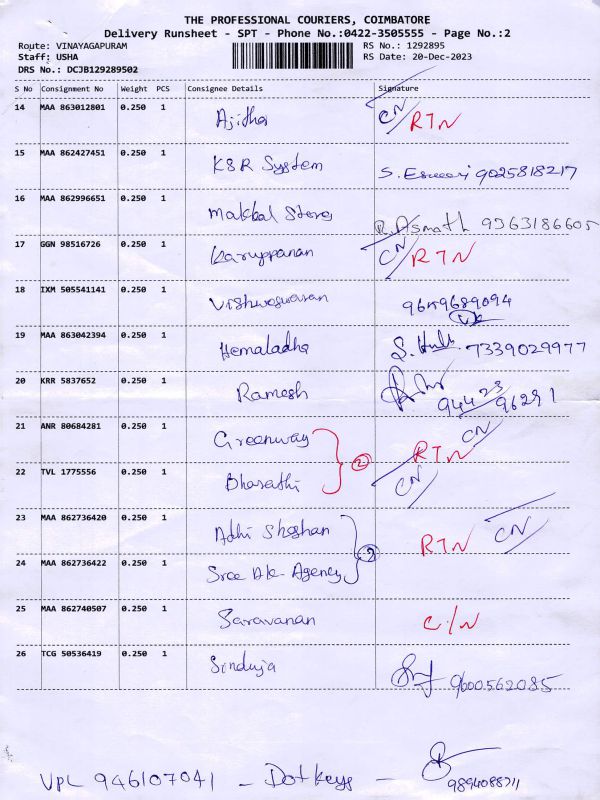 THE PROFESSIONAL COURIERS, COIMBATORE
Delivery Runsheet - SPT - Phone No.:0422-3505555 - Page No.:2
Route: VINAYAGAPURAM RS No.: 1292895
Staff: USHA RS Date: 20-Dec-2023
DRS No.: DCJB129289502
S No Consignment No Weight PCS Consignee Details Signature
14 MAA 863012801 0.250 1 Ajitha CN RTN
15 MAA 862427451 0.250 1 KSR System S. 9025818217
16 MAA 862996651 0.250 1 Makkal Stores R. Asmath 9963186605
17 GGN 98516726 0.250 1 Karuppanan CN RTN
18 IXM 505541141 0.250 1
19 MAA 863042394 0.250 1 Hemaladha S. 7339029977
20 KRR 5837652 0.250 1 Ramesh 94423 96291
21 ANR 80684281 0.250 1 Greenway RTN CN
22 TVL 1775556 0.250 1 Bharathi 2 CN
23 MAA 862736420 0.250 1 Adhi RTN CN
24 MAA 862736422 0.250 1 Sree Agency 2
25 MAA 862740507 0.250 1 Saravanan C/N
26 TCG 50536419 0.250 1 Sinduja 9600562085
VPL 946107041 - Dotkeys -